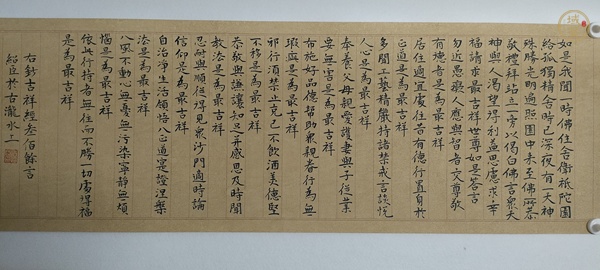 如是我聞一時佛住舍衛祗陀園
給孤獨精舍時已深夜有一大神
殊勝光明遍照園中来至佛所恭
敬禮拜站立一旁以偈白佛言眾天
神與人渴望得利益思慮求幸
福請求最吉祥世尊如是答言
勿近愚癡人應與智者交尊敬
有德者是為最吉祥
居住適宜處往昔有德行置身於
正道是為最吉祥
多聞工藝精嚴持諸禁戒言談悅
人心是為最吉祥
奉養父母親愛護妻與子從業
要無害是為最吉祥
布施好品德幫助眾親眷行為無
瑕疵是為最吉祥
邪行須禁止克己不飲酒美德堅
不移是為最吉祥
恭敬與謙讓知足并感恩及時聞
教法是為最吉祥
忍耐與順從得見眾沙門適時論
信仰是為最吉祥
自治淨生活領悟八正道寔證涅槃
法是為最吉祥
八風不動心無憂無污染寧静無煩
惱是為最吉祥
依此行持者無往而不勝一切處得福
是為最吉祥
右鈔吉祥經叁佰餘言
紹臣於古瀧水上